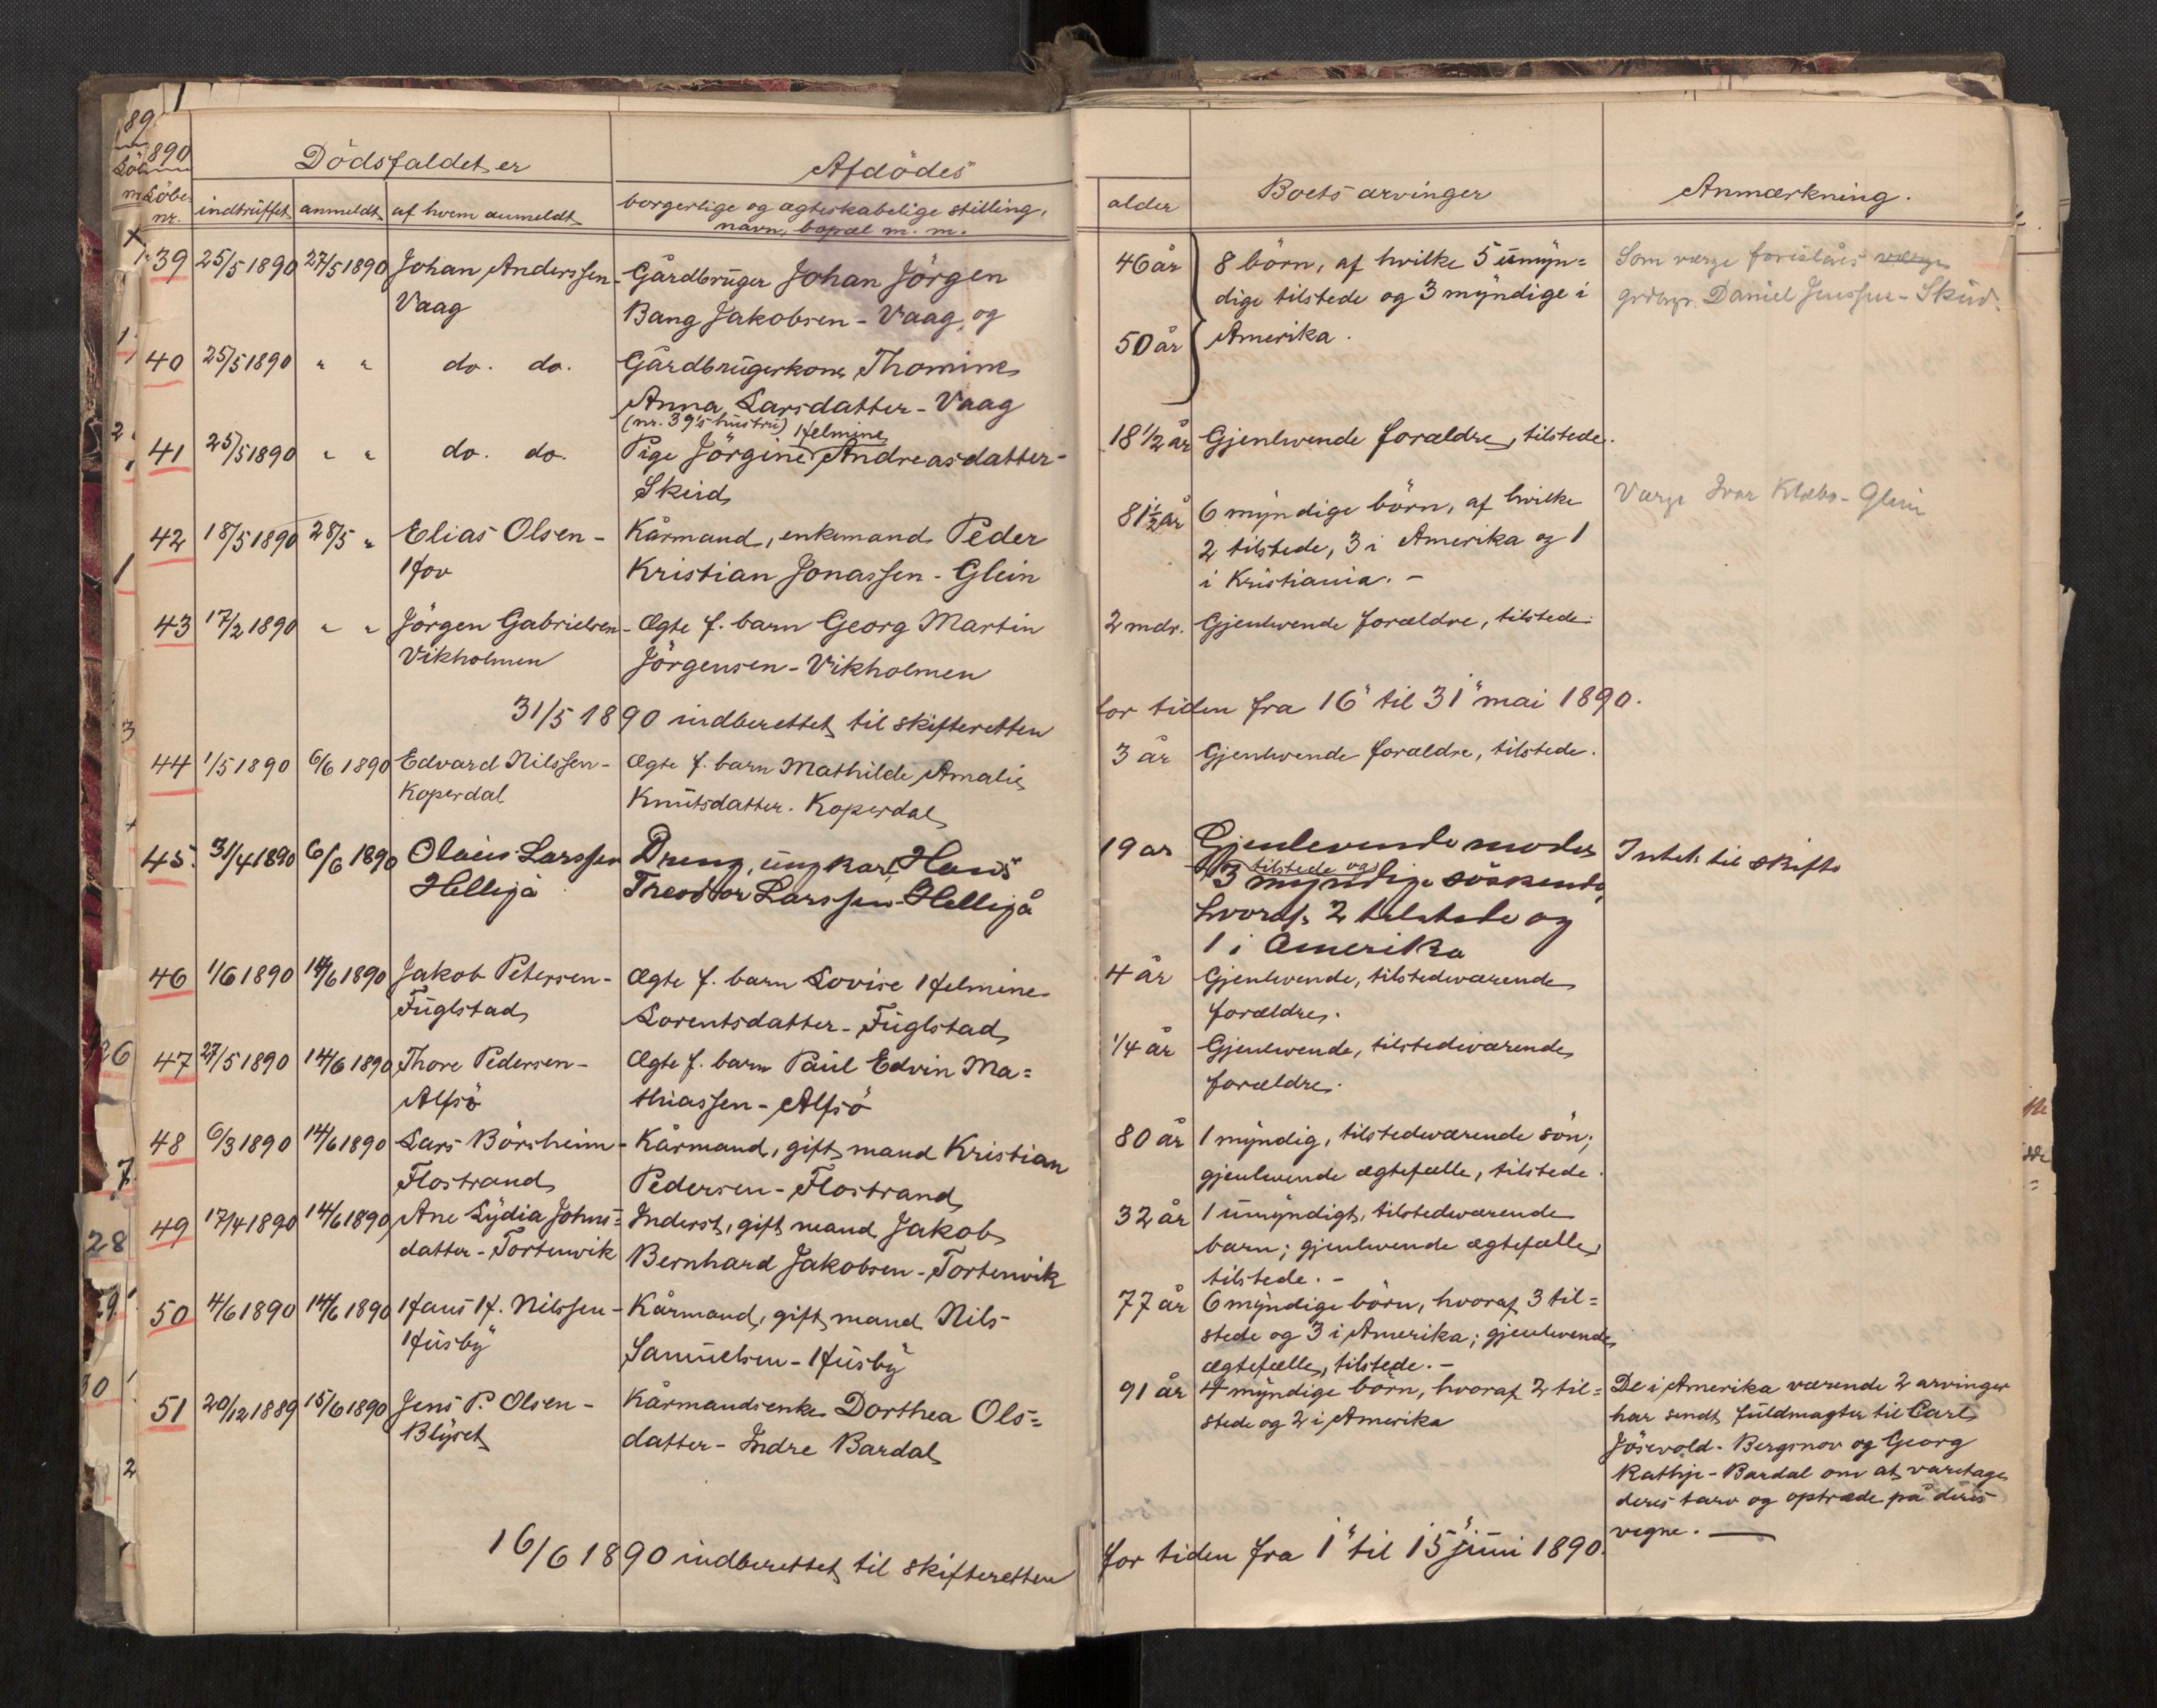 1890
Dödsfaldet er
Afdödes
Löbe
nr.
indtruffet
anmeldt
af hvem anmeldt
borgerlige og ægteskabelige stilling,
navn, bopæl m. m.
39 25/5 1890 27/5 1890 Johan Anderssen- Gårdbruger Johan Jörgen
Vaag Bang Jakobsen - Vaag, og
40 25/5 1890 " " do. do. Gårdbrugerkone Thomine
Anna Larsdatter - Vaag
(nr. 39's hustru) Helmine
41 25/5 1890 " " do. do. Pige Jörgine Andreasdatter-
Skeid
42 18/5 1890 28/5 " Elias Olsen - Kårmand, enkemand Peder
Hov Kristian Jonassen - Glein
43 17/2 1890 " " Jörgen Gabrielsen- Ægte f. barn Georg Martin
Vikholmen Jörgensen - Vikholmen
31/5 1890 indberettet til skifteretten
44 1/5 1890 6/6 1890 Edvard Nilssen- Ægte f. barn Mathilde Amalie
Koperdal Knutsdatter. Koperdal
45. 31/4 1890 6/6 1890 Olaus Larssen Dreng, ungkarl Hans
Hellesjå Theodor Larssen - Hellesjå
46 1/6 1890 14/6 1890 Jakob Petersen- Ægte f. barn Lovise Helmine
Fuglstad Lorentsdatter - Fuglstad
47 27/5 1890 14/6 1890 Thore Pedersen- Ægte f. barn Paul Edvin Ma=
Alfsö thiassen - Alfsö
48 6/3 1890 14/6 1890 Lars Börsheim- Kårmand, gift mand Kristian
Flostrand Pedersen - Flostrand
49 17/4 1890 14/6 1890 Ane Lydia Johns= Inderst, gift mand Jakob
datter - Tortenvik Bernhard Jakobsen - Tortenvik
50 4/6 1890 14/6 1890 Hans H. Nilssen- Kårmand, gift mand Nils
Husby Samuelsen - Husby
51 20/12 1889 15/6 1890 Jens P. Olsen - Kårmandsenke Dorthea Ols=
Blyset datter - Indre Bardal
16/6 1890 indberettet til skifteretten
alder
Boets arvinger
Anmærkning.
46 år 8 börn, af hvilke 5 umyn= Som værge foreslåes værge
dige tilstede og 3 myndige i grdbrgr. Daniel Jenssen - Skeid.
50 år Amerika.
18 1/2 år Gjenlevende forældre, tilstede.
81 1/2 år 6 myndige börn, af hvilke Værge Ivar Klæbo - Glein
2 tilstede, 3 i Amerika og 1
i Kristiania. -
2 mdr. Gjenlevende forældre, tilstede.
for tiden fra 16" til 31" mai 1890.
3 år Gjenlevende forældre, tilstede.
19 år Gjenlevende moder Intet til skifte
tilstede og
3 myndige söskende,
hvoraf 2 tilstede og
1 i Amerika
4 år Gjenlevende, tilstedeværende
forældre.
1/4 år Gjenlevende, tilstedeværende
forældre.
80 år 1 myndig, tilstedeværende sön;
gjenlevende ægtefælle, tilstede.
32 år 1 umyndigt, tilstedeværende
barn; gjenlevende ægtefælle,
tilstede. -
77 år 6 myndige börn, hvoraf 3 til=
stede og 3 i Amerika; gjenlevende
ægtefælle, tilstede. -
91 år 4 myndige börn, hvoraf 2 til= De i Amerika værende 2 arvinger
stede og 2 i Amerika har sendt fuldmagter til Carl
Jösevold - Bergsnov og Georg
Rathje - Bardal om at varetage
deres tarv og optræde på deres
vegne. -
for tiden fra 1" til 15" juni 1890.